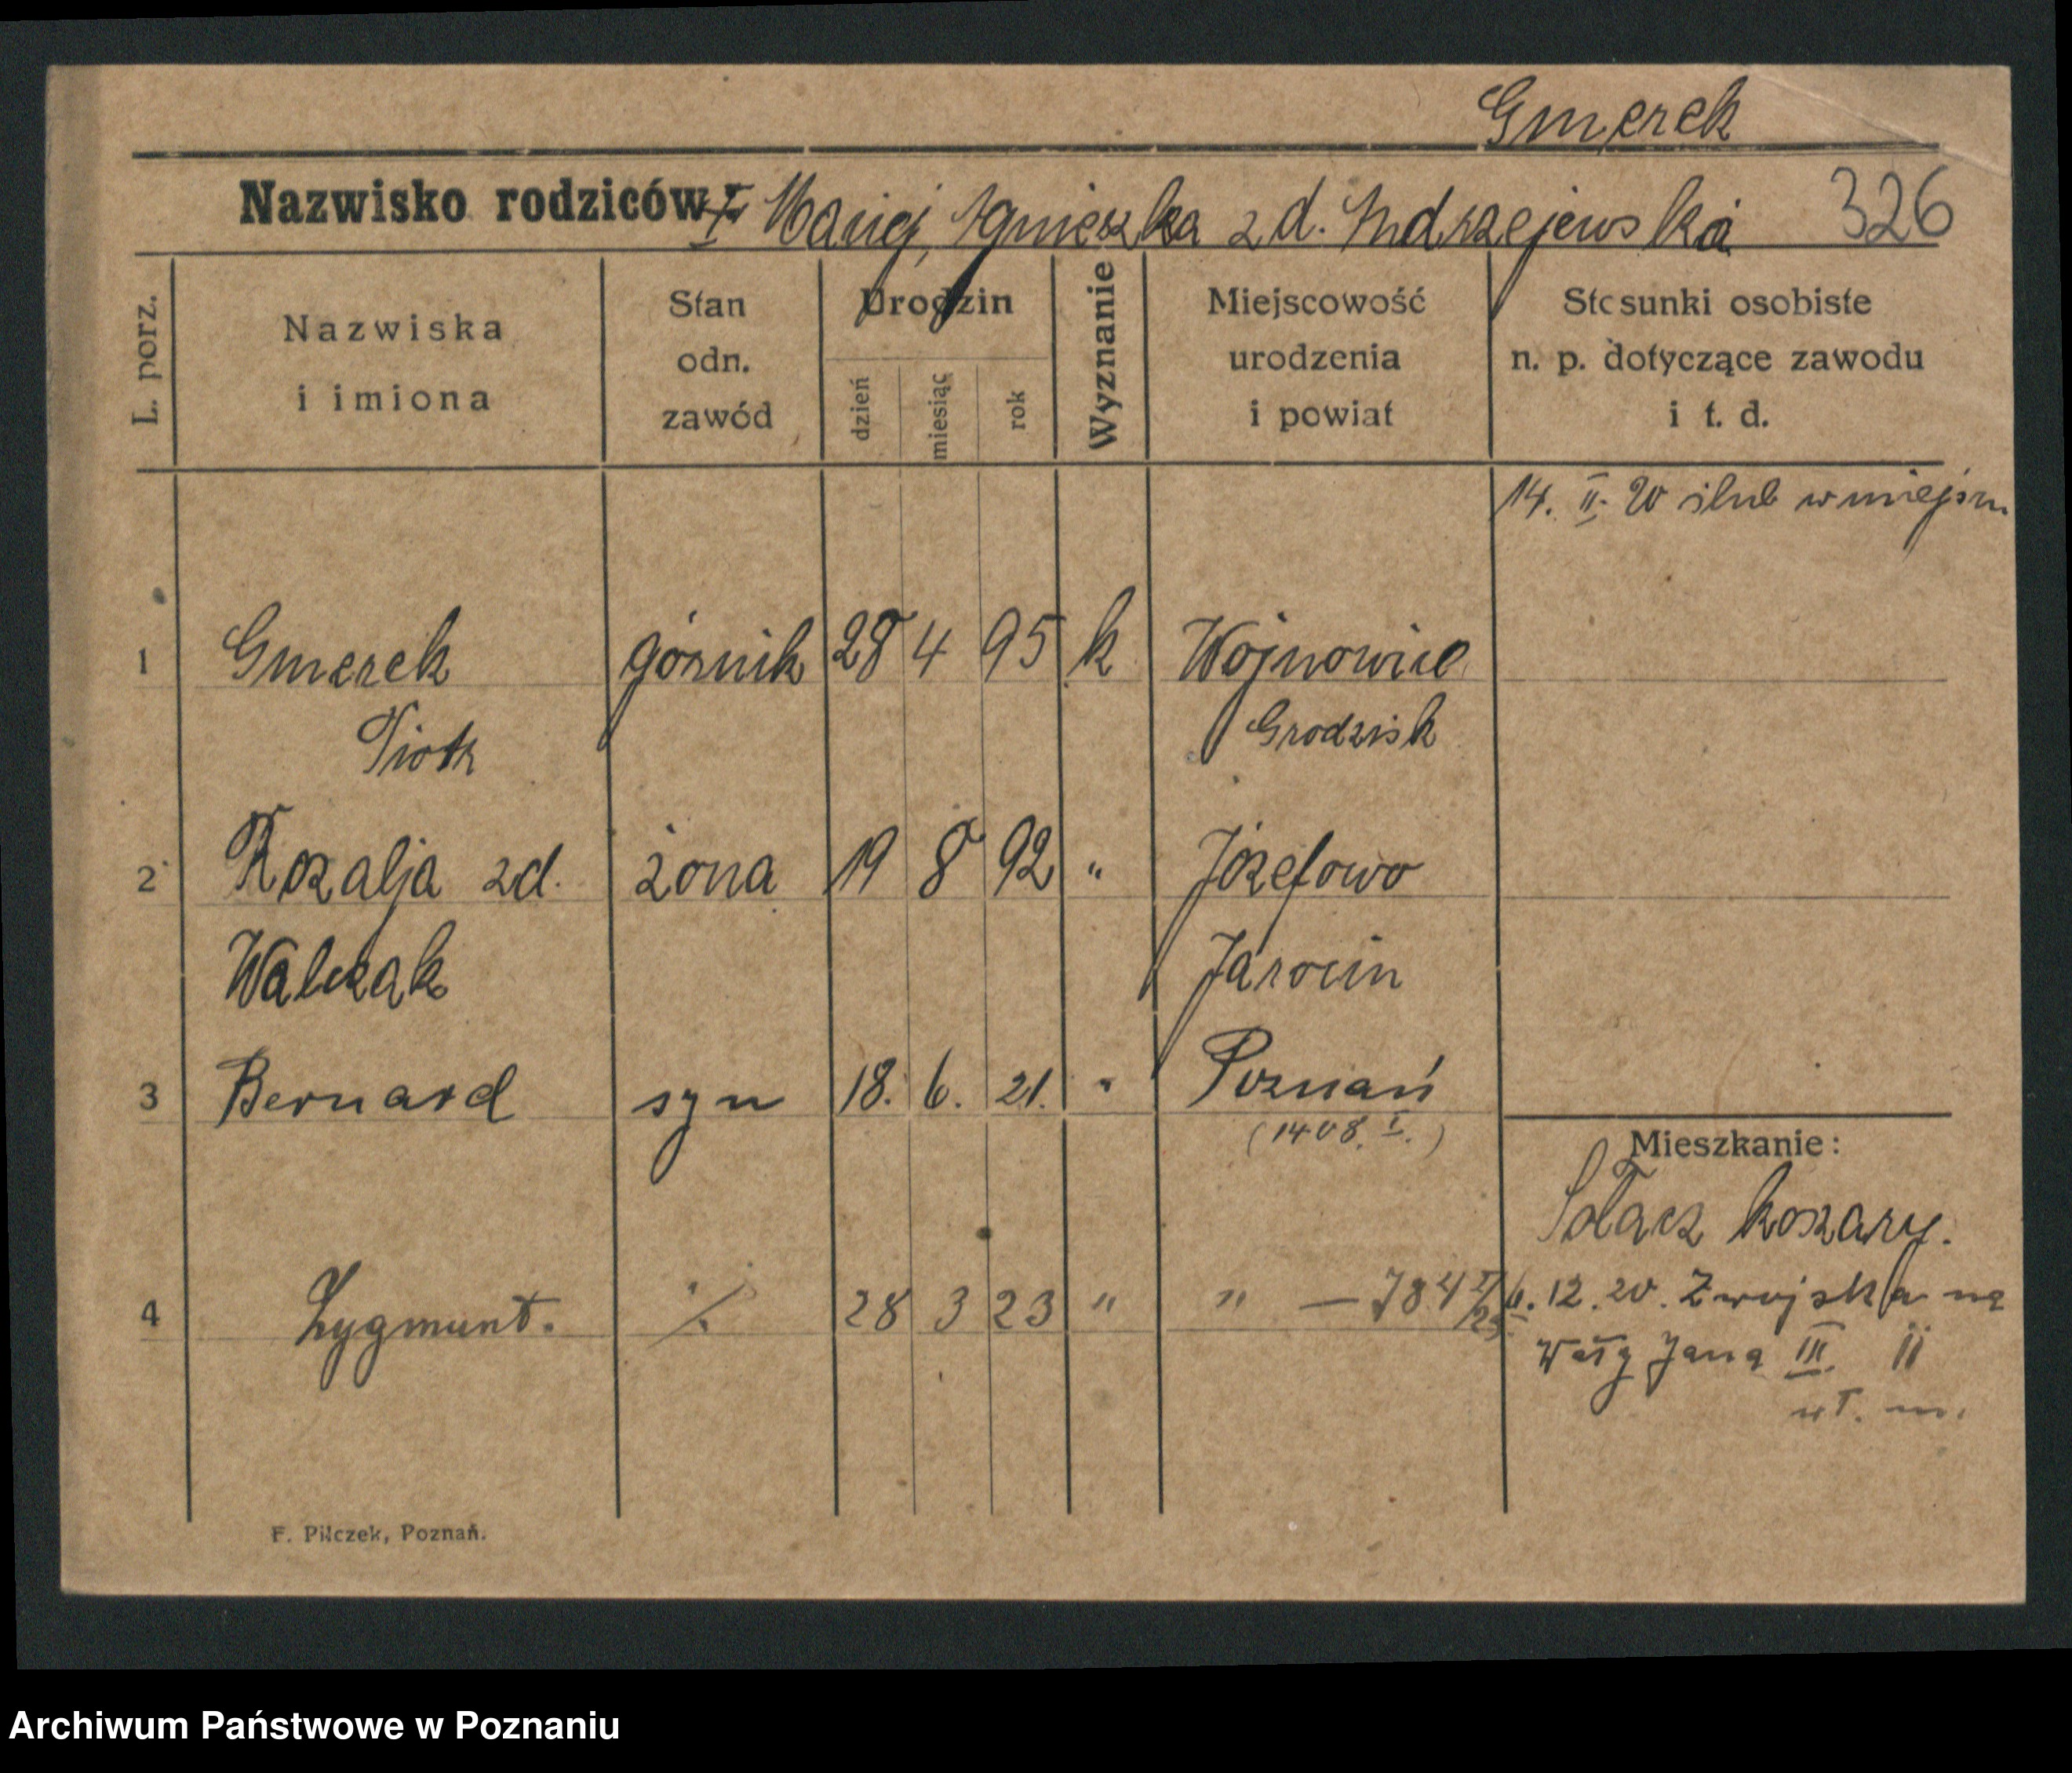 Gmerek
Nazwisko rodziców I Maciej, Agnieszka z d. Andrzejewska 326
L. porz.
Nazwiska
i imiona
Stan
odn.
zawód
Urodzin
dzień
miesiąc
rok
Wyznanie
Miejscowość
urodzenia
i powiat
Stosunki osobiste
n. p. dotyczące zawodu
i t. d.
14. II. 20 ślub w miejscu
1 Gmerek górnik 28 4 95 k Wojnowice
Piotr Grodzisk
2 Rozalja zd. żona 19 8 92 " Józefowo
Walczak Jarocin
3 Bernard syn 18. 6. 21. " Poznań
(1408. I.)
Mieszkanie:
Sołacz koszary.
4 Zygmunt. ./. 28 3 23 " " — 784 I/23
6. 12. 20. Z wojska na
Wały Jana III II
wł. m.
F. Pilczek, Poznań.
Archiwum Państwowe w Poznaniu